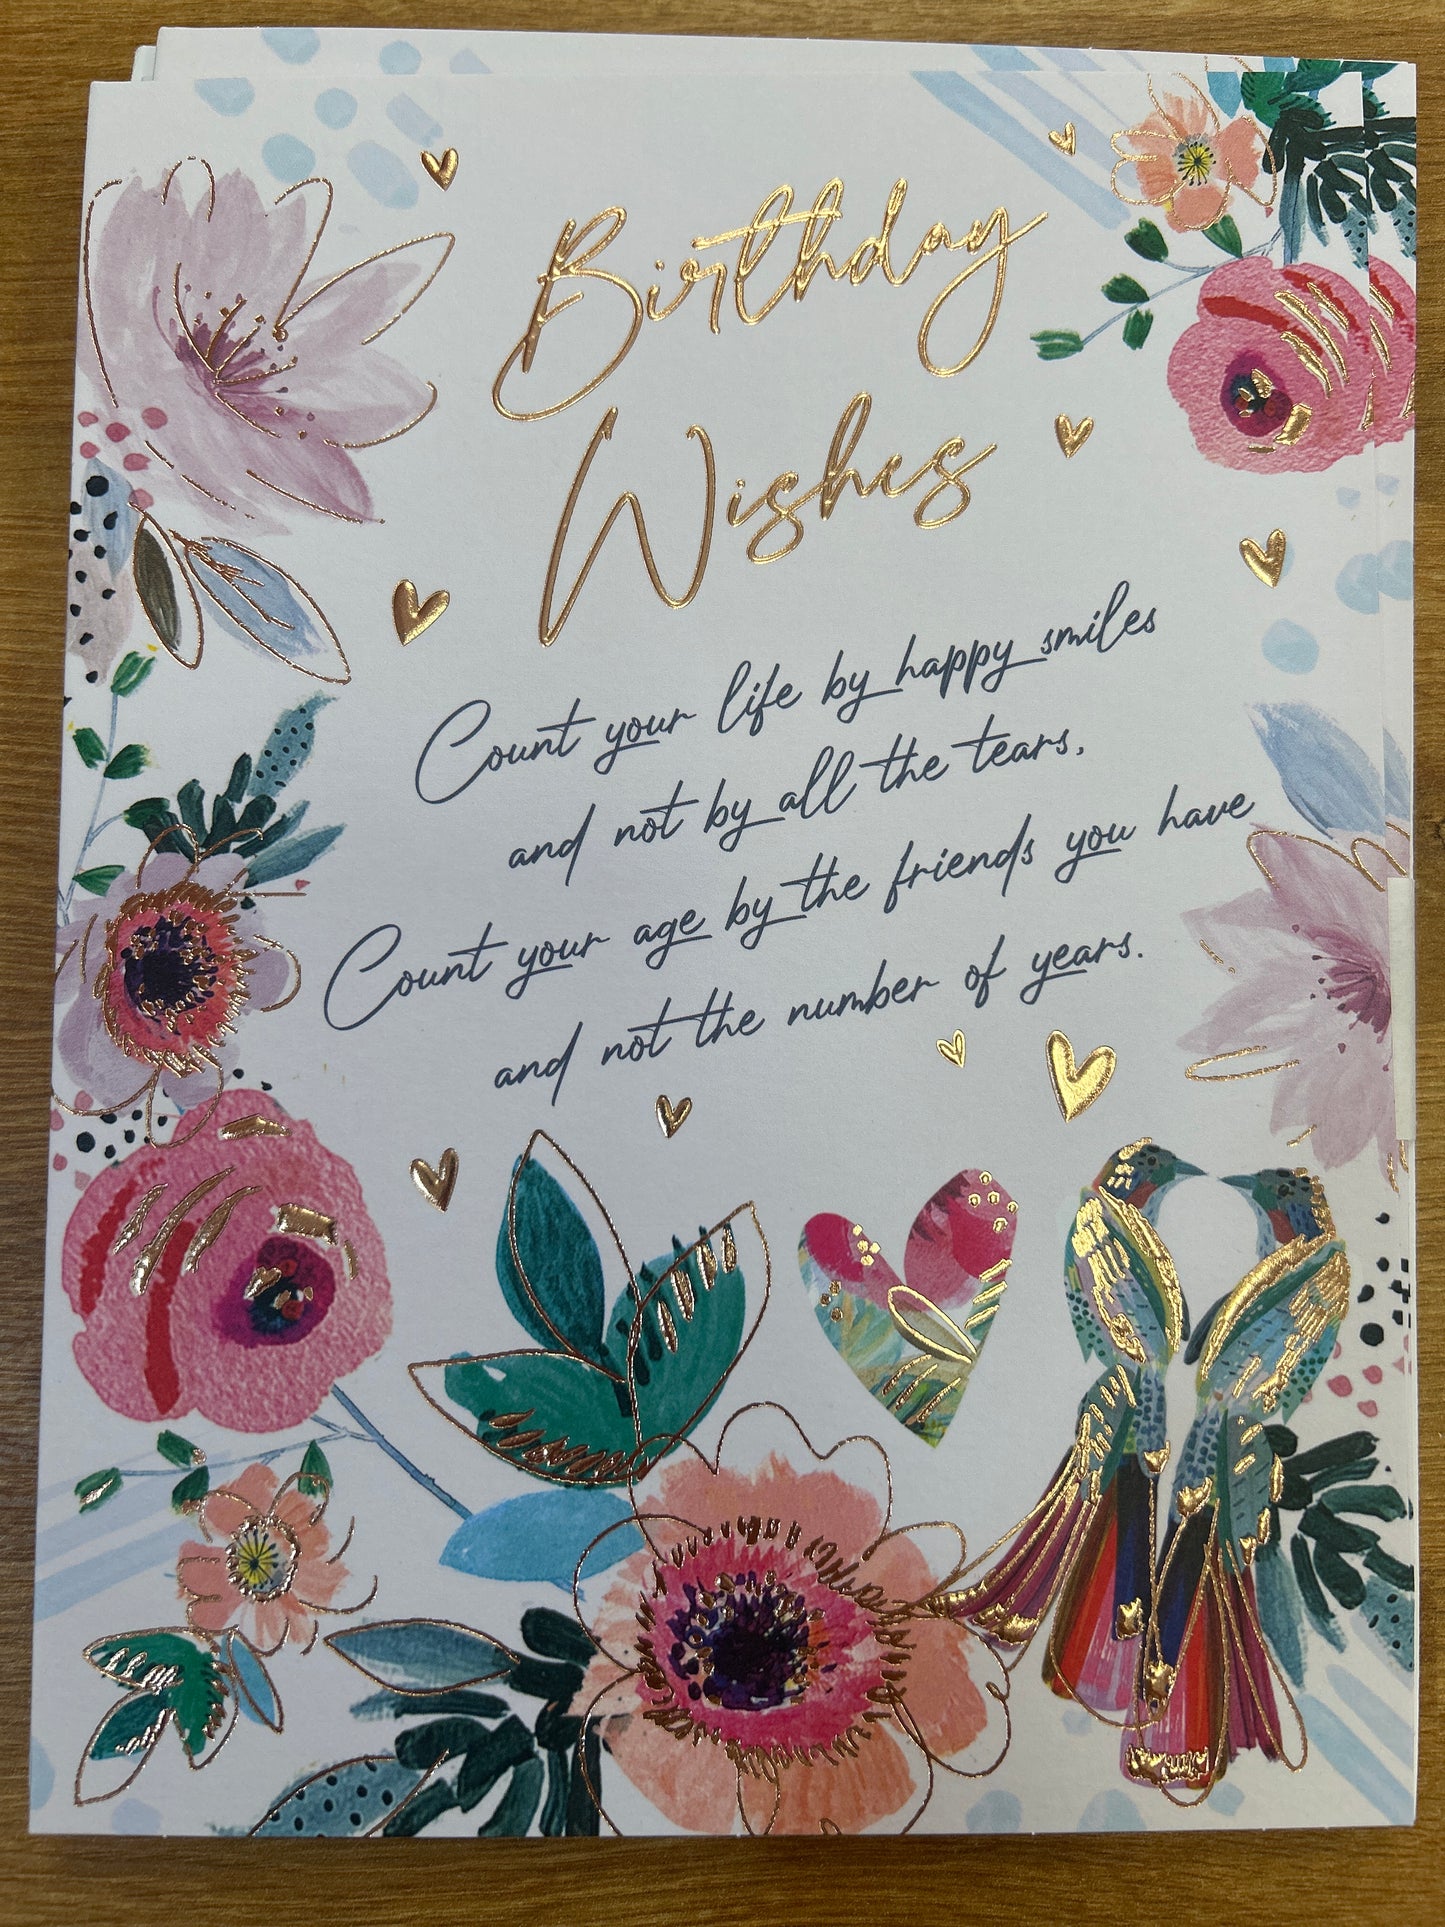 Birthday
Wishes
Count your life by happy smiles
and not by all the tears,
Count your age by the friends you have
and not the number of years.